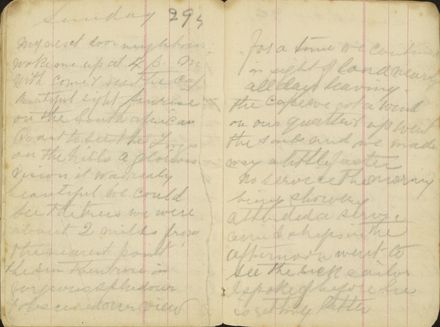 Sunday 29th
My next door neighbour
woke me up at 4 A.M.
with come & see the Cape
beautiful sight
on the South African
Coast to see the
on the hills a glorious
vision it was really
beautiful we could
see the trees we were
about 2 miles from
the nearest point
the sun then rose in
gorgeous splendour
down view
For a time we continued
in sight of land nearly
all day leaving
the cape we got a wind
on our quarter up went
the sails and we made
way a little faster
No service this morning
being showery
attended a service
amid ships in the
afternoon went to
see the sick sailor
I spoke of before he
is getting better